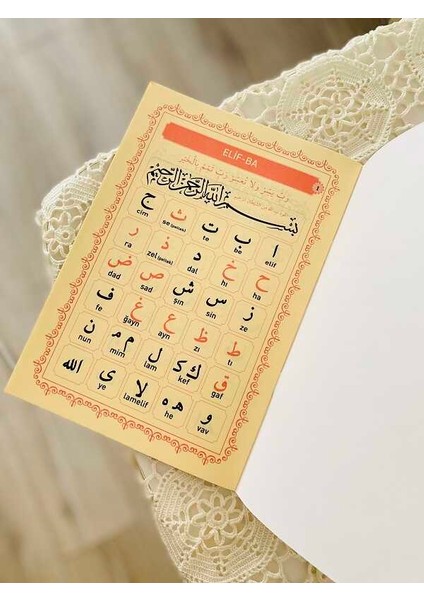 ELİF-BA
رَبِّ يَسِّرْ وَلَا تُعَسِّرْ رَبِّ تَمِّمْ بِالْخَيْرِ
بِسْمِ اللهِ الرَّحْمٰنِ الرَّحِيمِ
ا ب ت ث ج
elif be te se (peltek) cim
ح خ د ذ ر
ha hı dal zel (peltek) ra
ز س ش ص ض
ze sin şin sad dad
ط ظ ع غ ف
tı zı ayn ğayn fe
ق ك ک ل م م ن
gaf kef lam mim nun
و ه ه لا ي الله
vav he lamelif ye